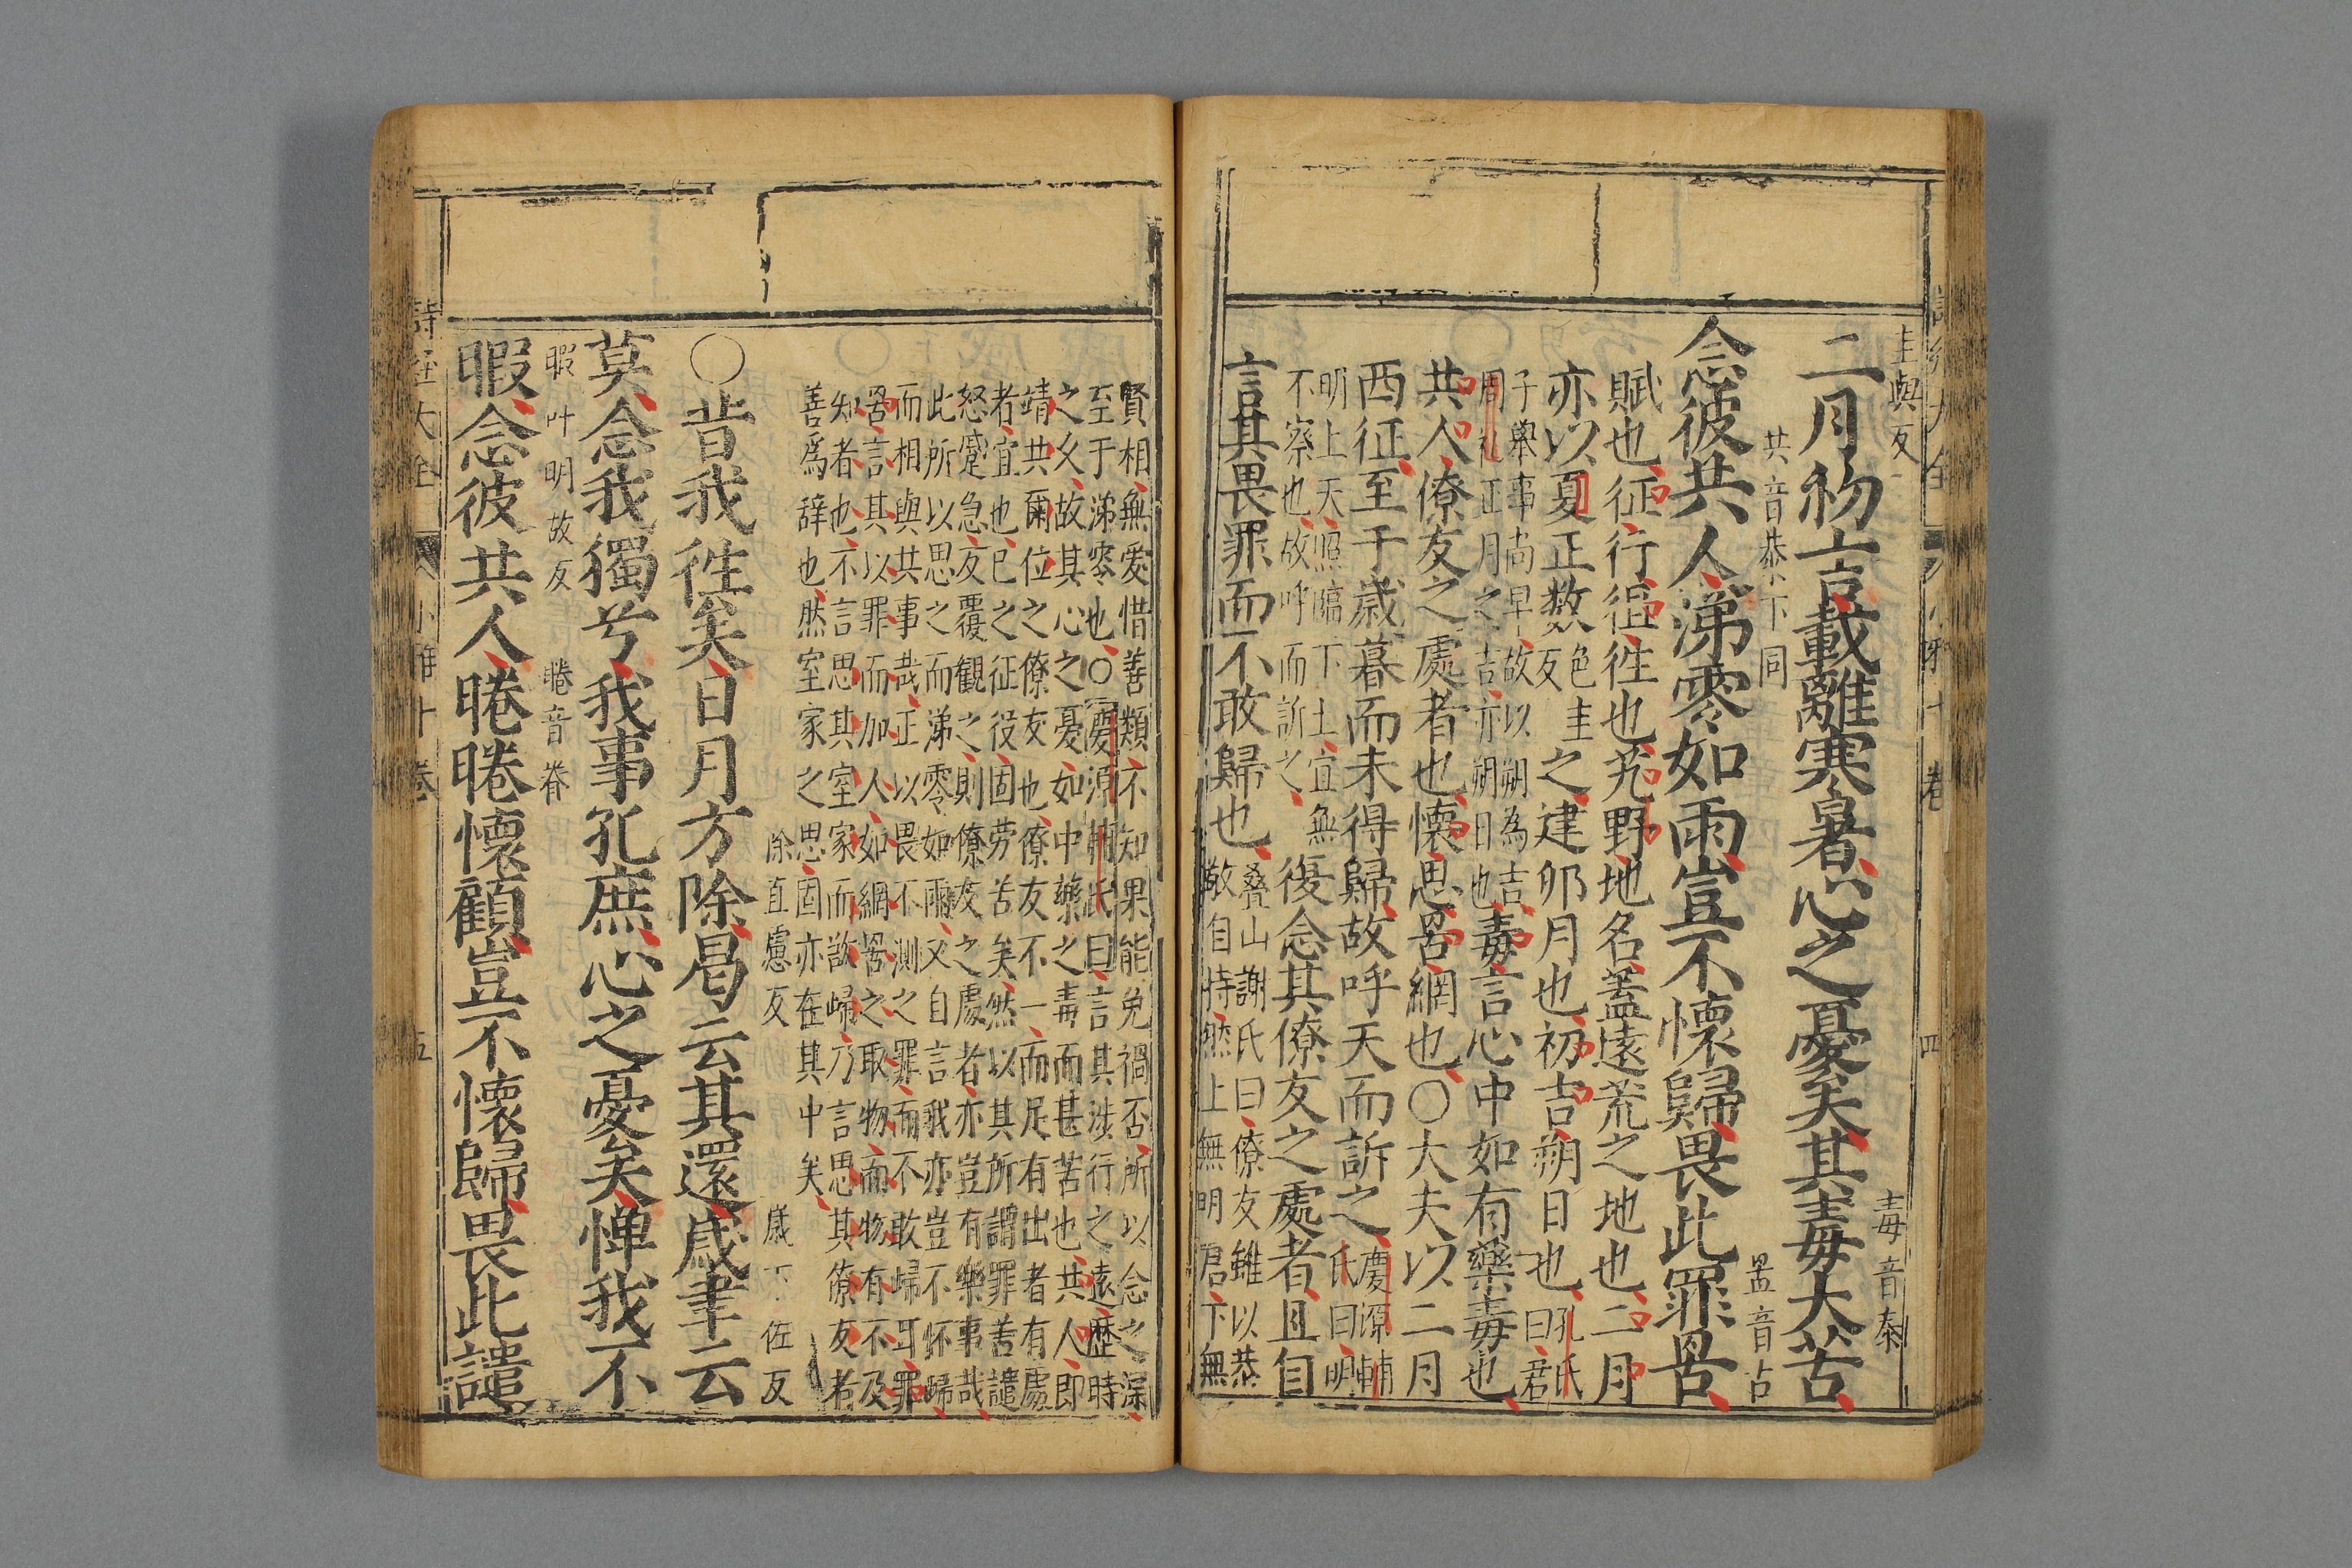 圭與反
二月初吉載離寒暑心之憂矣其毒大苦
毒音泰
共音恭下同
罟音古
念彼共人涕零如雨豈不懷歸畏此罪罟
賦也征行徂往也艽野地名蓋遠荒之地也二月
亦以夏正数色主反之建卯月也初吉朔日也孔氏曰君
子舉事尚早故以朔為吉
周礼正月之吉亦朔日也毒言心中如有藥毒也
共人僚友之處者也懷思罟網也○大夫以二月
西征至于歲暮而未得歸故呼天而訴之慶源輔氏曰明
明上天照臨下土宜無
不察也故呼而訴之復念其僚友之處者且自
言其畏罪而不敢歸也疊山謝氏曰僚友雖以恭
敬自持然上無明君下無
賢相無愛惜善類不知果能免禍否所以念之深
至于涕零也○慶源輔氏曰言其涉行之遠歷時
之久故其心之憂如中藥之毒而甚苦也共人即
靖共爾位之僚友也僚友不一而足有出者有處
者宜也已之征役固劳苦矣然以其所謂罪善譴
怒蹙急友覆観之則僚友之處者亦豈有樂事哉
此所以思之而涕零如雨又自言我亦豈不怀歸
而相與共事哉正以畏不測之罪而不敢歸耳罪
罟言其以罪而加人如網罟之取物而物有不及
知者也不言思其室家而欲歸乃言思其僚友者
善爲辞也然室家之思固亦在其中矣
除直慮反
歲下佐反
○昔我徃矣日月方除曷云其還歲聿云
莫念我獨兮我事孔庶心之憂矣憚我不
暇叶明故反
睠音眷
暇念彼共人睠睠懷顧豈不懷歸畏此譴
詩經大全
小雅十卷
五
四